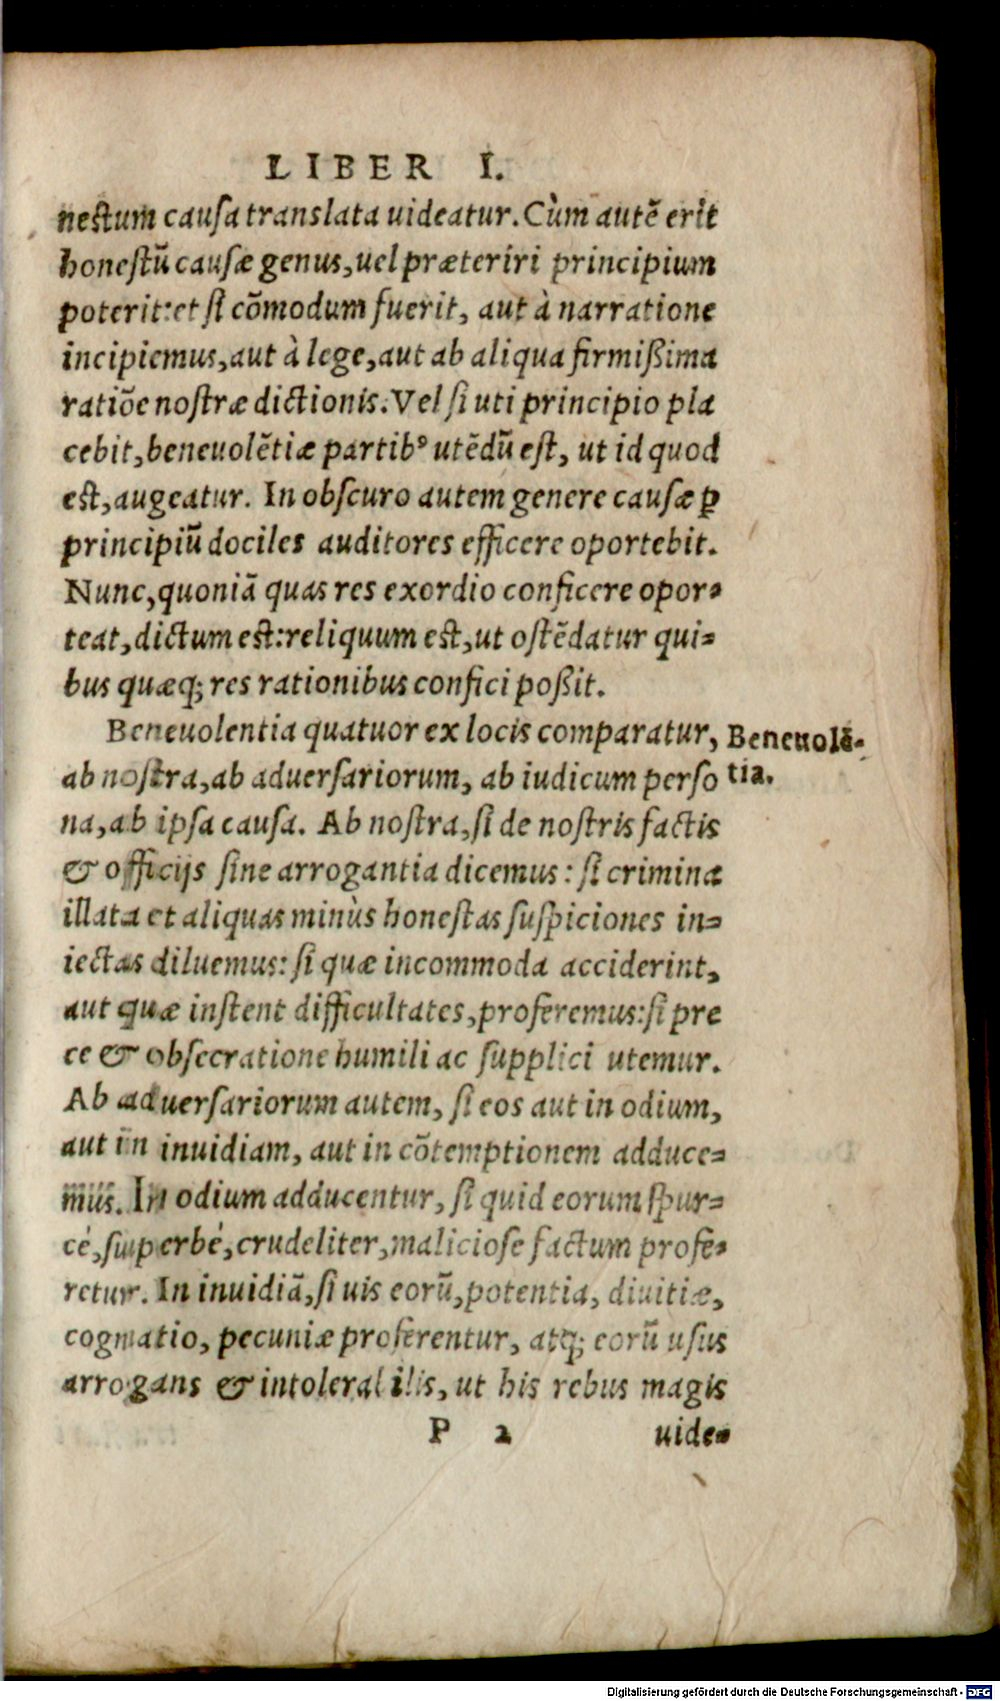 LIBER I.
nestum causa translata uideatur. Cùm autē erit
honestū causæ genus, uel præteriri principium
poterit: et si cōmodum fuerit, aut à narratione
incipiemus, aut à lege, aut ab aliqua firmißima
ratiōe nostræ dictionis. Vel si uti principio pla
cebit, beneuolētiæ partibꝰ utēdū est, ut id quod
est, augeatur. In obscuro autem genere causæ ꝑ
principiū dociles auditores efficere oportebit.
Nunc, quoniā quas res exordio conficere opor-
teat, dictum est: reliquum est, ut ostēdatur qui-
bus quæq; res rationibus confici poßit.
Beneuolentia quatuor ex locis comparatur,
Beneuolē-
tia.
ab nostra, ab aduersariorum, ab iudicum perso
na, ab ipsa causa. Ab nostra, si de nostris factis
& officijs sine arrogantia dicemus: si crimina
illata et aliquas minùs honestas suspiciones in-
iectas diluemus: si quæ incommoda acciderint,
aut quæ instent difficultates, proferemus: si pre
ce & obsecratione humili ac supplici utemur.
Ab aduersariorum autem, si eos aut in odium,
aut in inuidiam, aut in cōtemptionem adduce-
mus. In odium adducentur, si quid eorum spur-
cè, superbè, crudeliter, maliciose factum profe-
retur. In inuidiā, si uis eorū, potentia, diuitiæ,
cognatio, pecuniæ proferentur, atq; eorū usus
arrogans & intolerabilis, ut his rebus magis
P 2
uide-
Digitalisierung gefördert durch die Deutsche Forschungsgemeinschaft - DFG